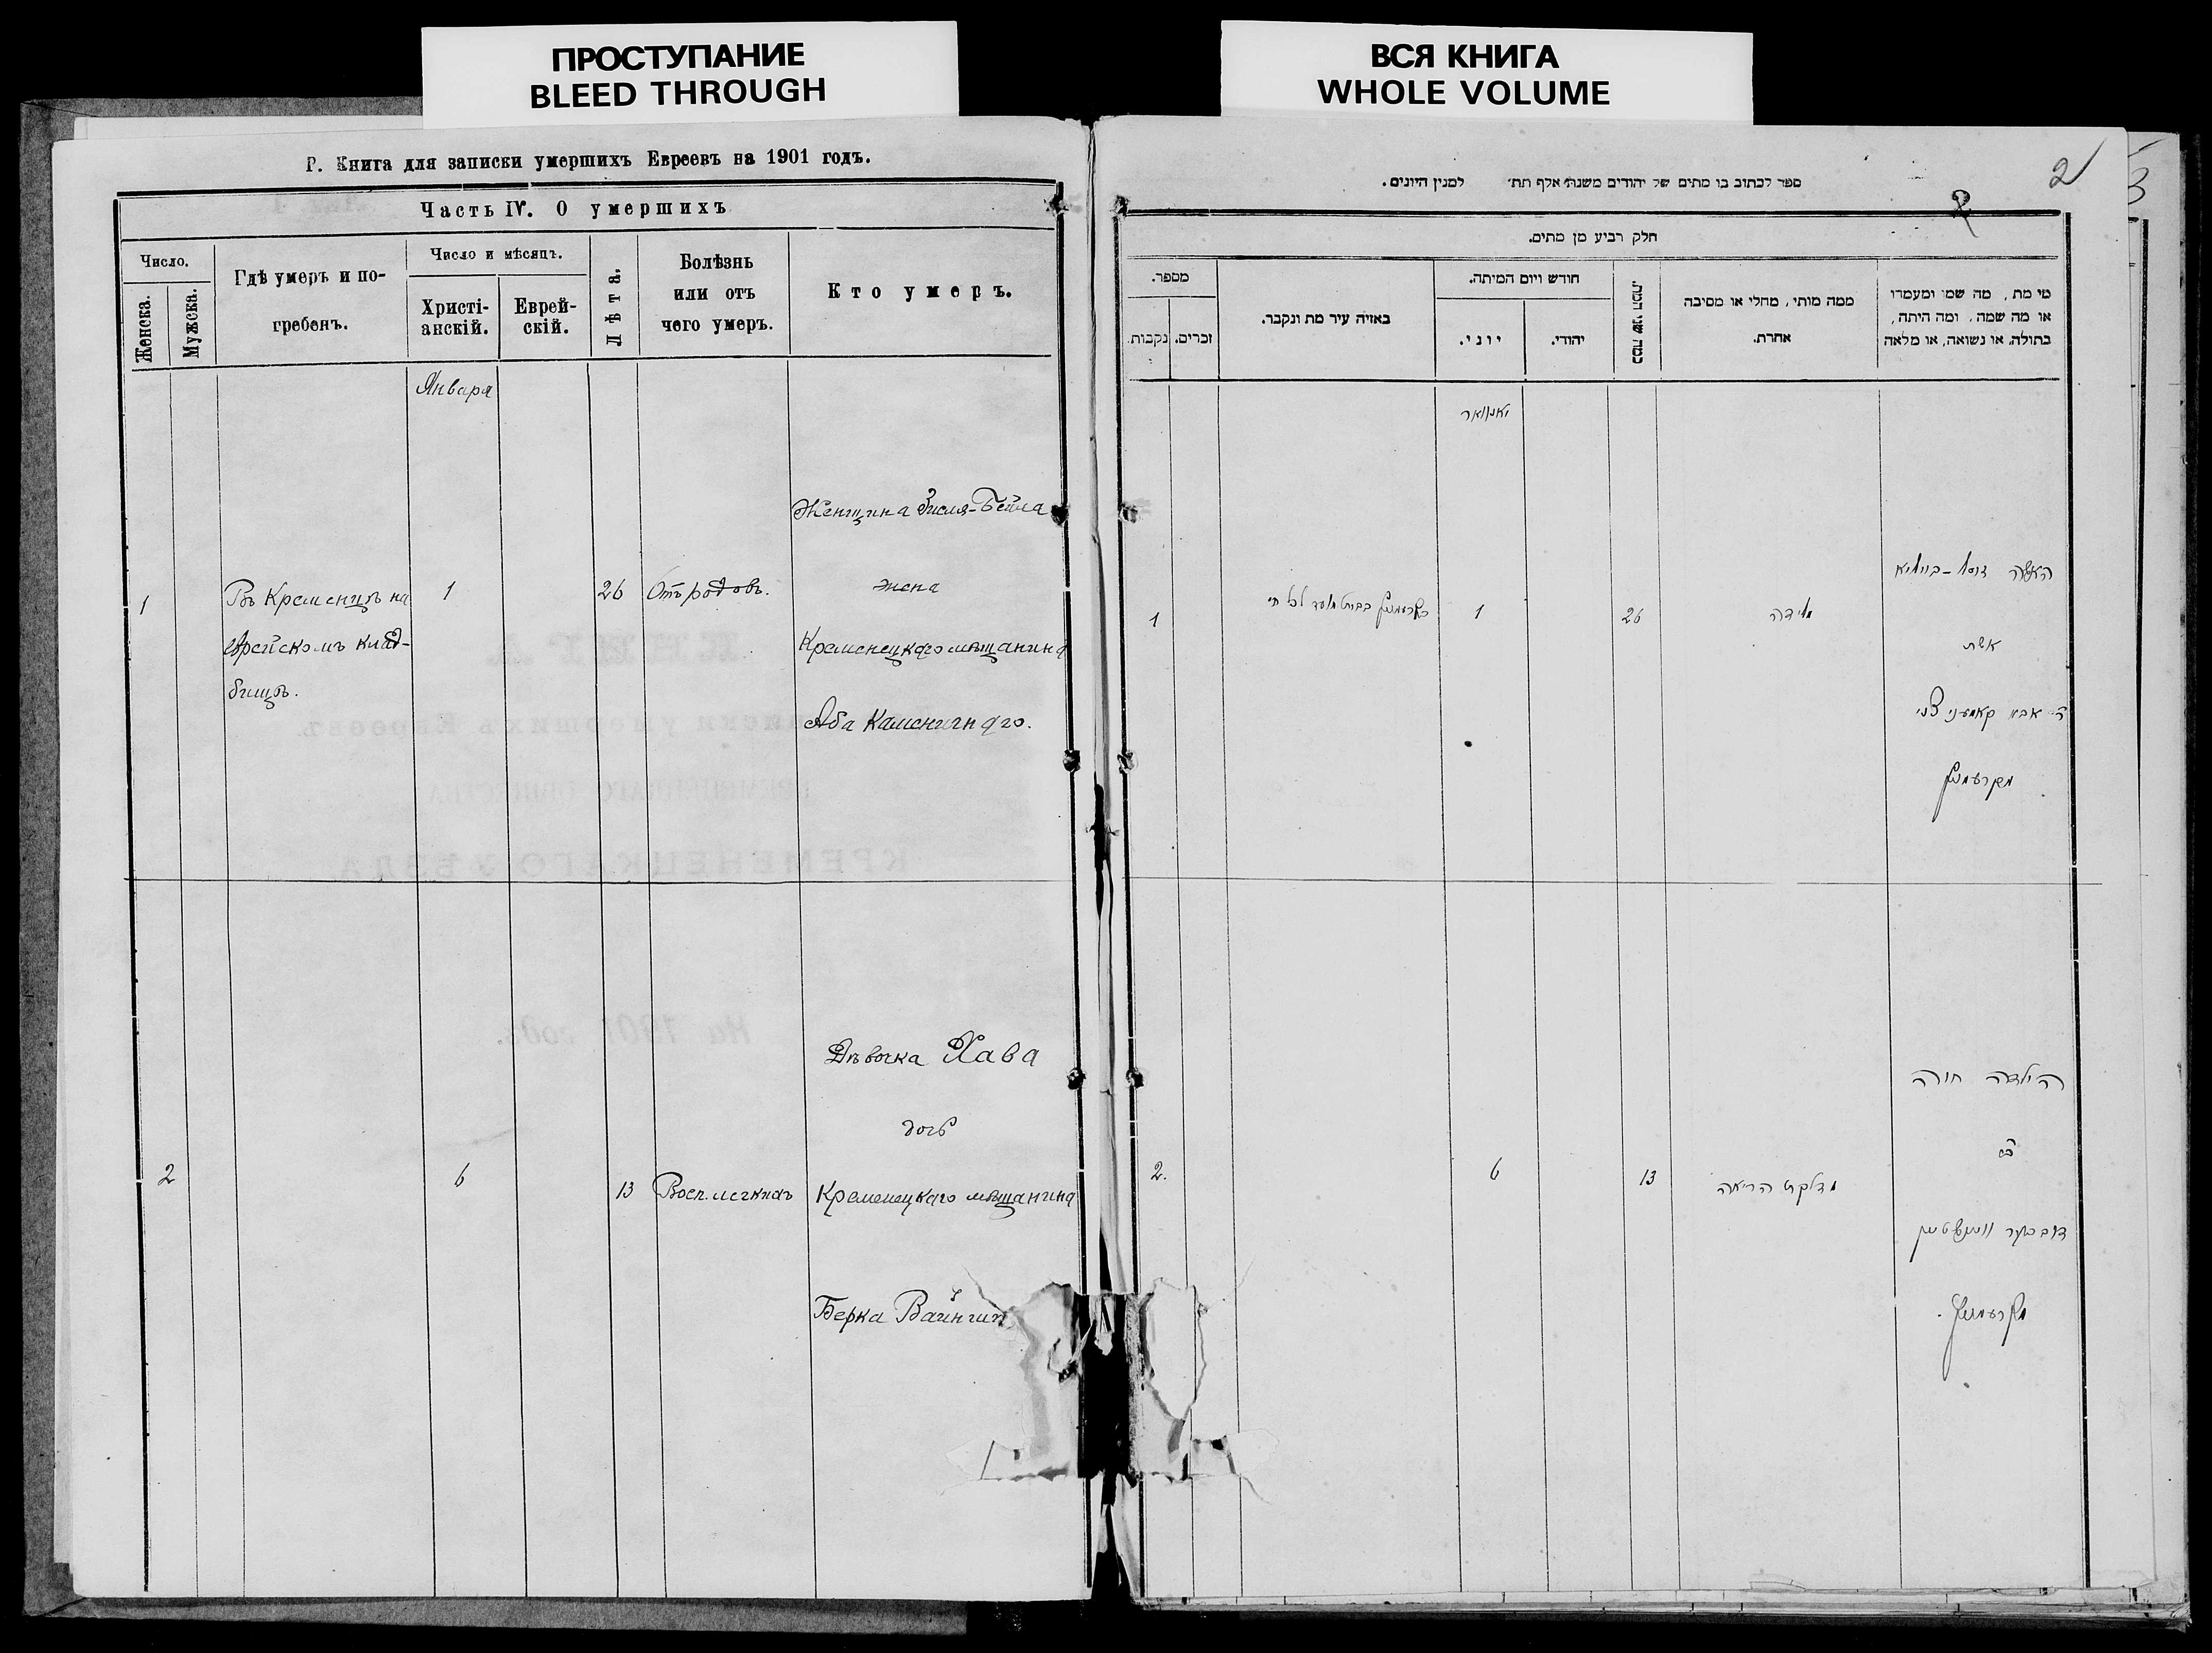 ПРОСТУПАНИЕ
BLEED THROUGH
ВСЯ КНИГА
WHOLE VOLUME
Г. Книга для записки умершихъ Евреевъ на 1901 годъ.
Часть IV. О умершихъ
Число.
Женска.
Мужска.
Гдѣ умеръ и по-
гребенъ.
Число и мѣсяцъ.
Христі-
анскій.
Еврей-
скій.
Лѣта.
Болѣзнь
или отъ
чего умеръ.
Кто умеръ.
Января
Женщина Зисля-Бейла
1
Въ Кременцѣ на
Еврейскомъ клад-
бищѣ.
1
26
Отъ родовъ.
жена
Кременецкаго мѣщанина
Аба
2
6
13
Восп. легкихъ
Дѣвочка Хава
дочь
Кременецкаго мѣщанина
Берка
2
3
ספר לכתוב בו מתים של יהודים משנה אלף תת׳ למנין היונים.
2
חלק רביע מן מתים.
מספר.
נקבות
זכרים.
באזיה עיר מת ונקבר.
חודש ויום המיתה.
יוני.
יהודי.
כמה שני המת.
ממה מותי, מחלי או מסיבה
אחרת.
מי מת, מה שמו ומעמדו
או מה שמה, ומה היתה,
בתולה, או נשואה, או מלאה
יאנואר
1
1
26
לידה
האשה
אשת
ר׳ אבא
מקרעמניץ
2.
6
13
מדלקת הריאה
הילדה חוה
בת
דוב בער וויינשטיין
מקרעמניץ.